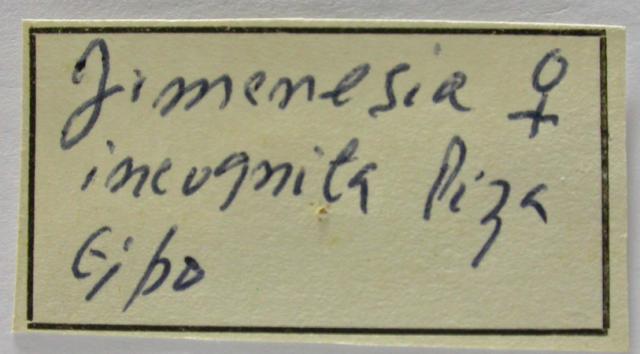 Jimenesia ♀
incognita Piza
Tipo